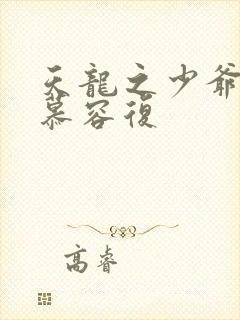 天龍之少爺
慕容復
高睿